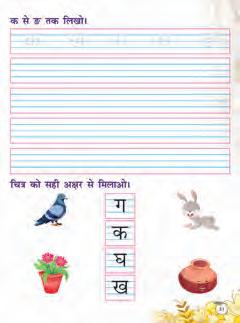 क से ङ तक लिखो।
क ख ग घ ङ
चित्र को सही अक्षर से मिलाओ।
ग
क
घ
ख
31